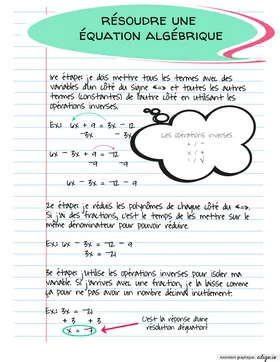 RÉSOUDRE UNE
ÉQUATION ALGÉBRIQUE
1re étape: je dois mettre tous les termes avec des
variables d'un côté du signe <=> et toutes les autres
termes (constantes) de l'autre côté en utilisant les
opérations inverses.
Ex: 6x + 9 = 3x - 12
-3x -3x
6x - 3x + 9 = -12
-9 -9
6x - 3x = -12 - 9
Les opérations inverses
+ / -
x / ÷
² / √
2e étape: je réduis les polynômes de chaque côté du <=>.
Si j'ai des fractions, c'est le temps de les mettre sur le
même dénominateur pour pouvoir réduire.
Ex: 6x - 3x = -12 - 9
3x = -21
3e étape: j'utilise les opérations inverses pour isoler ma
variable. Si j'arrives avec une fraction, je la laisse comme
ça pour ne pas avoir un nombre décimal inutilement.
Ex: 3x = -21
÷ 3 ÷ 3
x = -7
C'est la réponse d'une
résolution d'équation!
Assistant graphique: eduga.ie